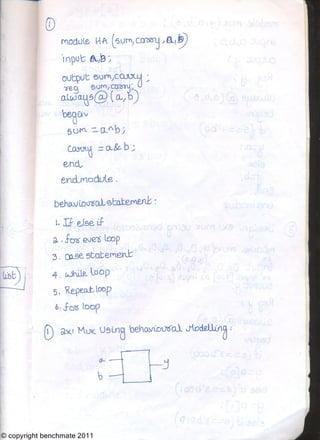 ①
module HA (sum, carry, a, b)
input a, b;
output sum, carry;
reg sum, carry;
always @ (a, b)
begin
sum = a^b;
carry = a & b;
end
endmodule.
behavioural statement:
1. If else if
2. for ever loop
3. case statement
4. while loop
5. Repeat loop
6. for loop
list
① 2x1 Mux Using behavioural Modelling:
a
y
b
© copyright benchmate 2011